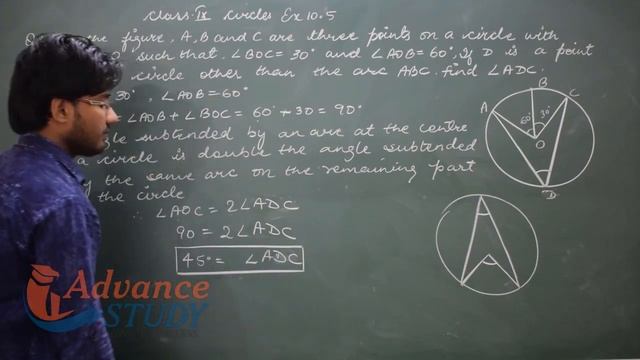 Class: IX Circles Ex 10.5
Q. the figure, A, B and C are three points on a circle with
such that ∠BOC = 30° and ∠AOB = 60°, If D is a point
circle other than the arc ABC. find ∠ADC.
30°, ∠AOB = 60°
= ∠AOB + ∠BOC = 60° + 30 = 90°
subtended by an arc at the centre
a circle is double the angle subtended
the same arc on the remaining part
the circle
∴ ∠AOC = 2∠ADC
90 = 2∠ADC
45° = ∠ADC
A
B
C
60°
30°
O
D
Advance
STUDY